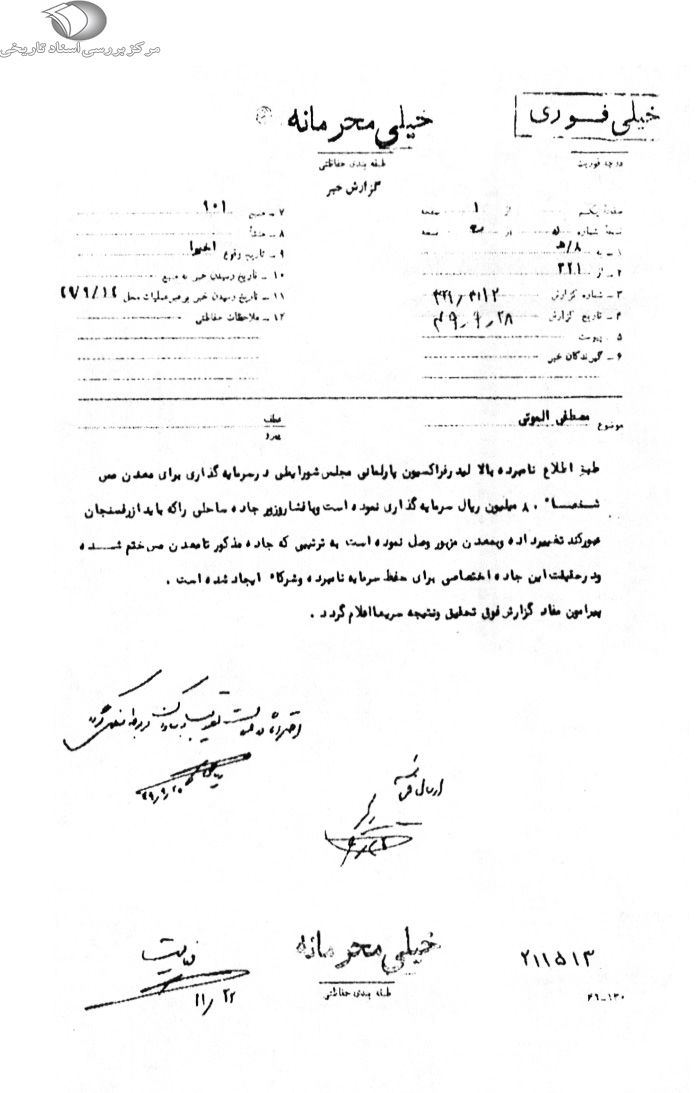 مرکز بررسی اسناد تاریخی
خیلی فوری
درجه فوریت
خیلی محرمانه
طبقه بندی حفاظتی
گزارش خبر
صفحه یکم از ۱ صفحه
نسخه شماره در نسخه
۱ ـ به ۸/ﻫ
۲ ـ از ۳۲۱
۳ ـ شماره گزارش
۴ ـ تاریخ گزارش ۴۹٫۹٫۲۸
۵ ـ پیوست
۶ ـ گیرندگان خبر
۷ ـ منبع ۹۰۱
۸ ـ منشأ
۹ ـ تاریخ وقوع اخیرا
۱۰ ـ تاریخ رسیدن خبر به منبع
۱۱ ـ تاریخ رسیدن خبر برهبر عملیات محل
۱۲ ـ ملاحظات حفاظتی
موضوع مصطفی الموتی
عطف
پیرو
طبق اطلاع نامبرده بالا لیدر فراکسیون پارلمانی مجلس شورایملی در سرمایه گذاری برای معدن مس
شخصاً ۸۰ میلیون ریال سرمایه گذاری نموده است وبا فشار وزیر جاده ساحلی راکه باید از رفسنجان
عبورکند تغییر داده وبمعدن مزبور وصل نموده است به ترتیبی که جاده مذکور تا معدن مس ختم شده
ودرحقیقت این جاده اختصاصی برای حفظ سرمایه نامبرده وشرکاء ایجاد شده است .
پیرامون مفاد گزارش فوق تحقیق ونتیجه سریعا اعلام گردد .
ارسال
خیلی محرمانه
طبقه بندی حفاظتی
۲۱۱۵۱۳
۱۱٫۲۲